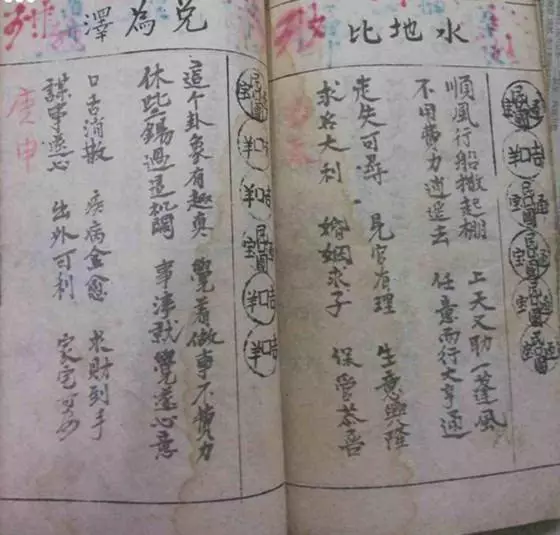 水地比
順風行船撒起棚 上天又助一蓬風
不用費力逍遥去 任意而行大亨通
走失可尋 見官有理 生意興隆
求名大利 婚姻求子 保管恭喜
兌為澤
這个卦象有趣真 覺着做事不費力
休些錯過這机関 事 就覺遂心意
口舌消散 疾病全愈 求財到手
謀事遂心 出外可利 家宅
庚申